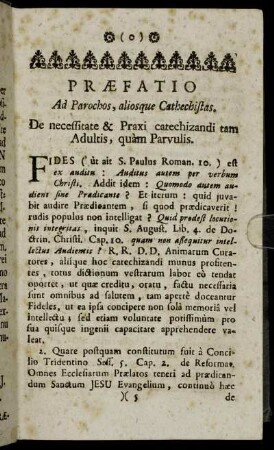 (o)
PRÆFATIO
Ad Parochos, aliosque Cathechistas.
De necessitate & Praxi catechizandi tam
Adultis, quàm Parvulis.
FIDES (ùt ait S. Paulus Roman. 10.) est
ex auditu: Auditus autem per verbum
Christi. Addit idem: Quomodo autem au-
dient sine Prædicante? Et iterum: quid juva-
bit audire Prædicantem, si quod prædicaverit
rudis populus non intelligat? Quid prodest locutio-
nis integritas, inquit S. August. Lib. 4. de Do-
ctrin. Christi, Cap. 10. quam non assequitur intel-
lectus Audientis? R.R. D.D. Animarum Cura-
tores, aliique hoc catechizandi munus profiten-
tes, totus dictionum vestrarum labor eò tendat
oportet, ut quæ creditu, oratu, factu necessaria
sunt omnibus ad salutem, tam apertè doceantur
Fideles, ut ea ipsa concipere non solà memorià vel
intellectu, sed etiam voluntate potissimùm pro
sua quisque ingenii capacitate apprehendere va-
leat.
2. Quare postquam constitutum fuit à Conci-
lio Tridentino Sess. 5. Cap. 2. de Reformat.
Omnes Ecclesiarum Prælatos teneri ad prædican-
dum Sanctum JESU Evangelium, continuò hæc
)( 5 de